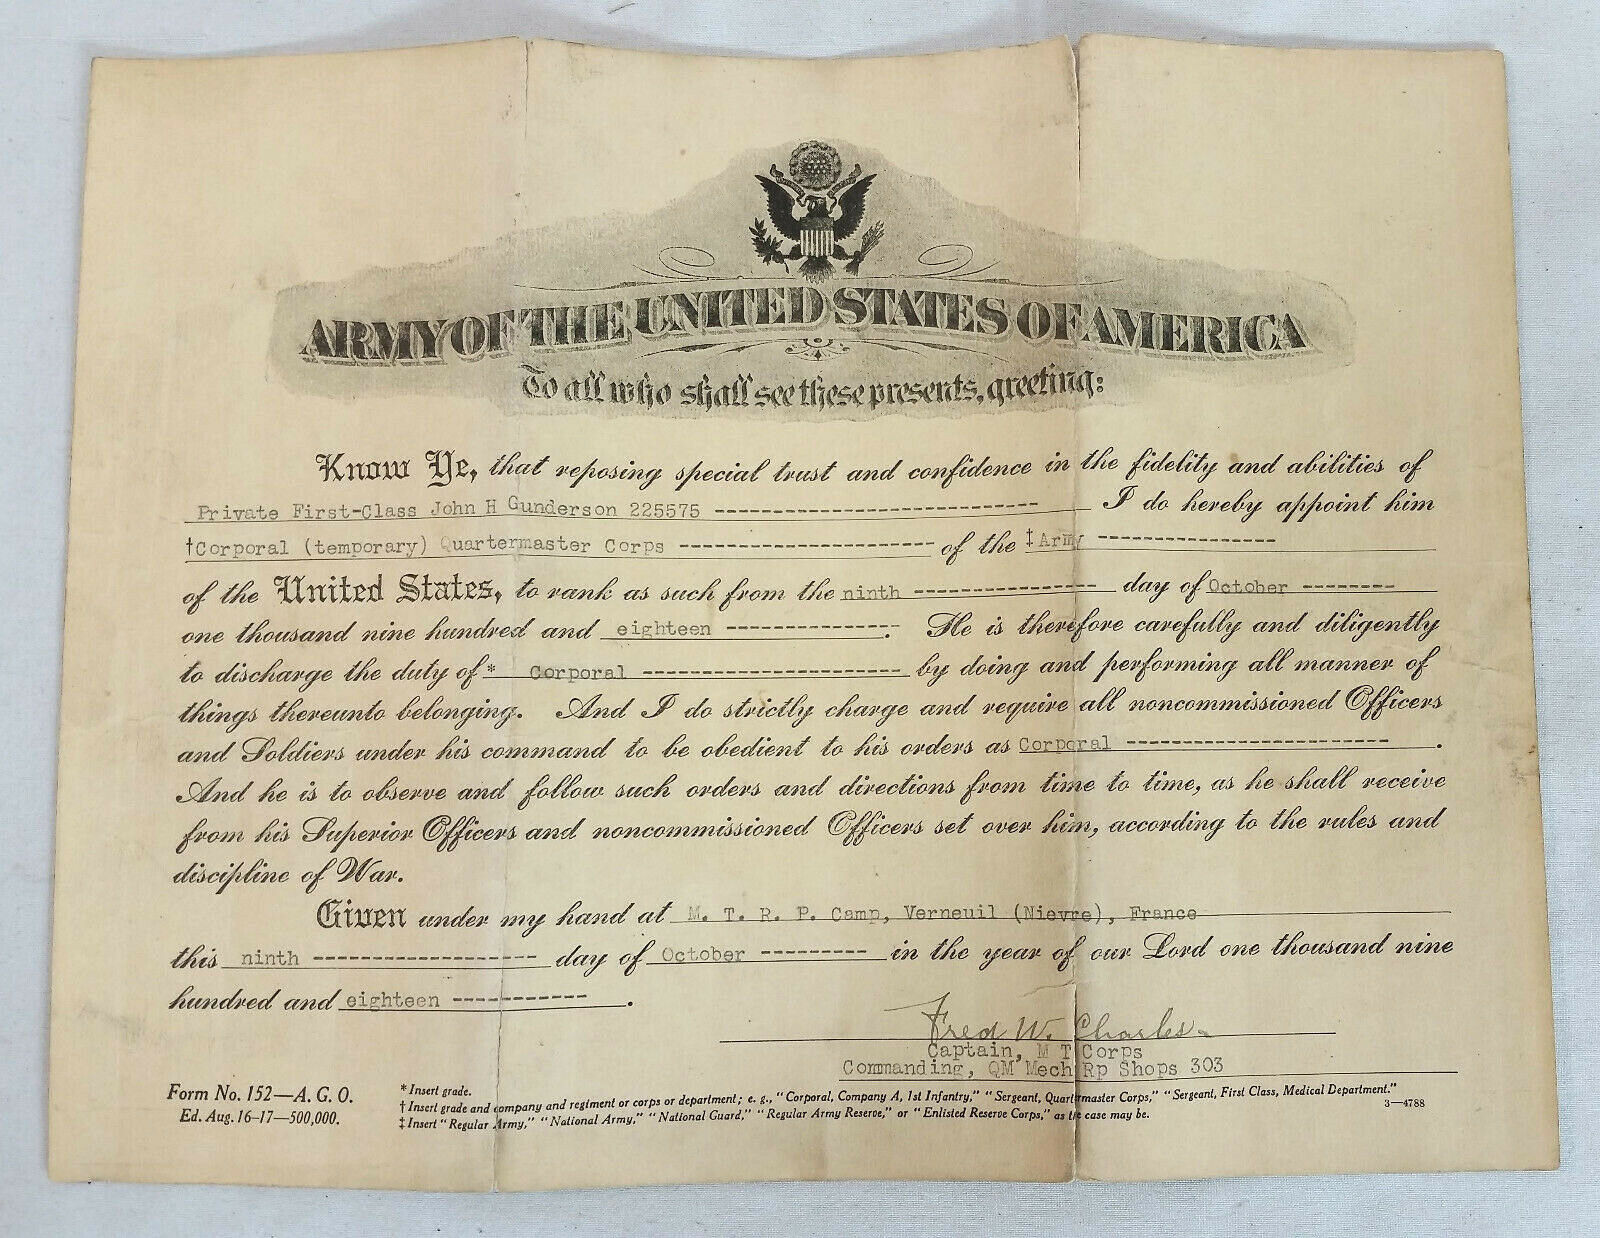 ARMY OF THE UNITED STATES OF AMERICA
To all who shall see these presents, greeting:
Know Ye, that reposing special trust and confidence in the fidelity and abilities of
Private First-Class John H Gunderson 225575 ---------------------------- I do hereby appoint him
†Corporal (temporary) Quartermaster Corps ---------------------- of the ‡Army ---------------
of the United States, to rank as such from the ninth ---------------- day of October --------
one thousand nine hundred and eighteen ---------------. He is therefore carefully and diligently
to discharge the duty of* Corporal ---------------------- by doing and performing all manner of
things thereunto belonging. And I do strictly charge and require all noncommissioned Officers
and Soldiers under his command to be obedient to his orders as Corporal -----------------------.
And he is to observe and follow such orders and directions from time to time, as he shall receive
from his Superior Officers and noncommissioned Officers set over him, according to the rules and
discipline of War.
Given under my hand at M. T. R. P. Camp, Verneuil (Nievre), France
this ninth ------------------- day of October --------- in the year of our Lord one thousand nine
hundred and eighteen -----------.
Fred W. Charles
Captain, M T Corps
Commanding, QM Mech Rp Shops 303
Form No. 152—A. G. O.
Ed. Aug. 16-17—500,000.
*Insert grade.
†Insert grade and company and regiment or corps or department; e. g., "Corporal, Company A, 1st Infantry," "Sergeant, Quartermaster Corps," "Sergeant, First Class, Medical Department."
‡Insert "Regular Army," "National Army," "National Guard," "Regular Army Reserve," or "Enlisted Reserve Corps," as the case may be.
3—4788